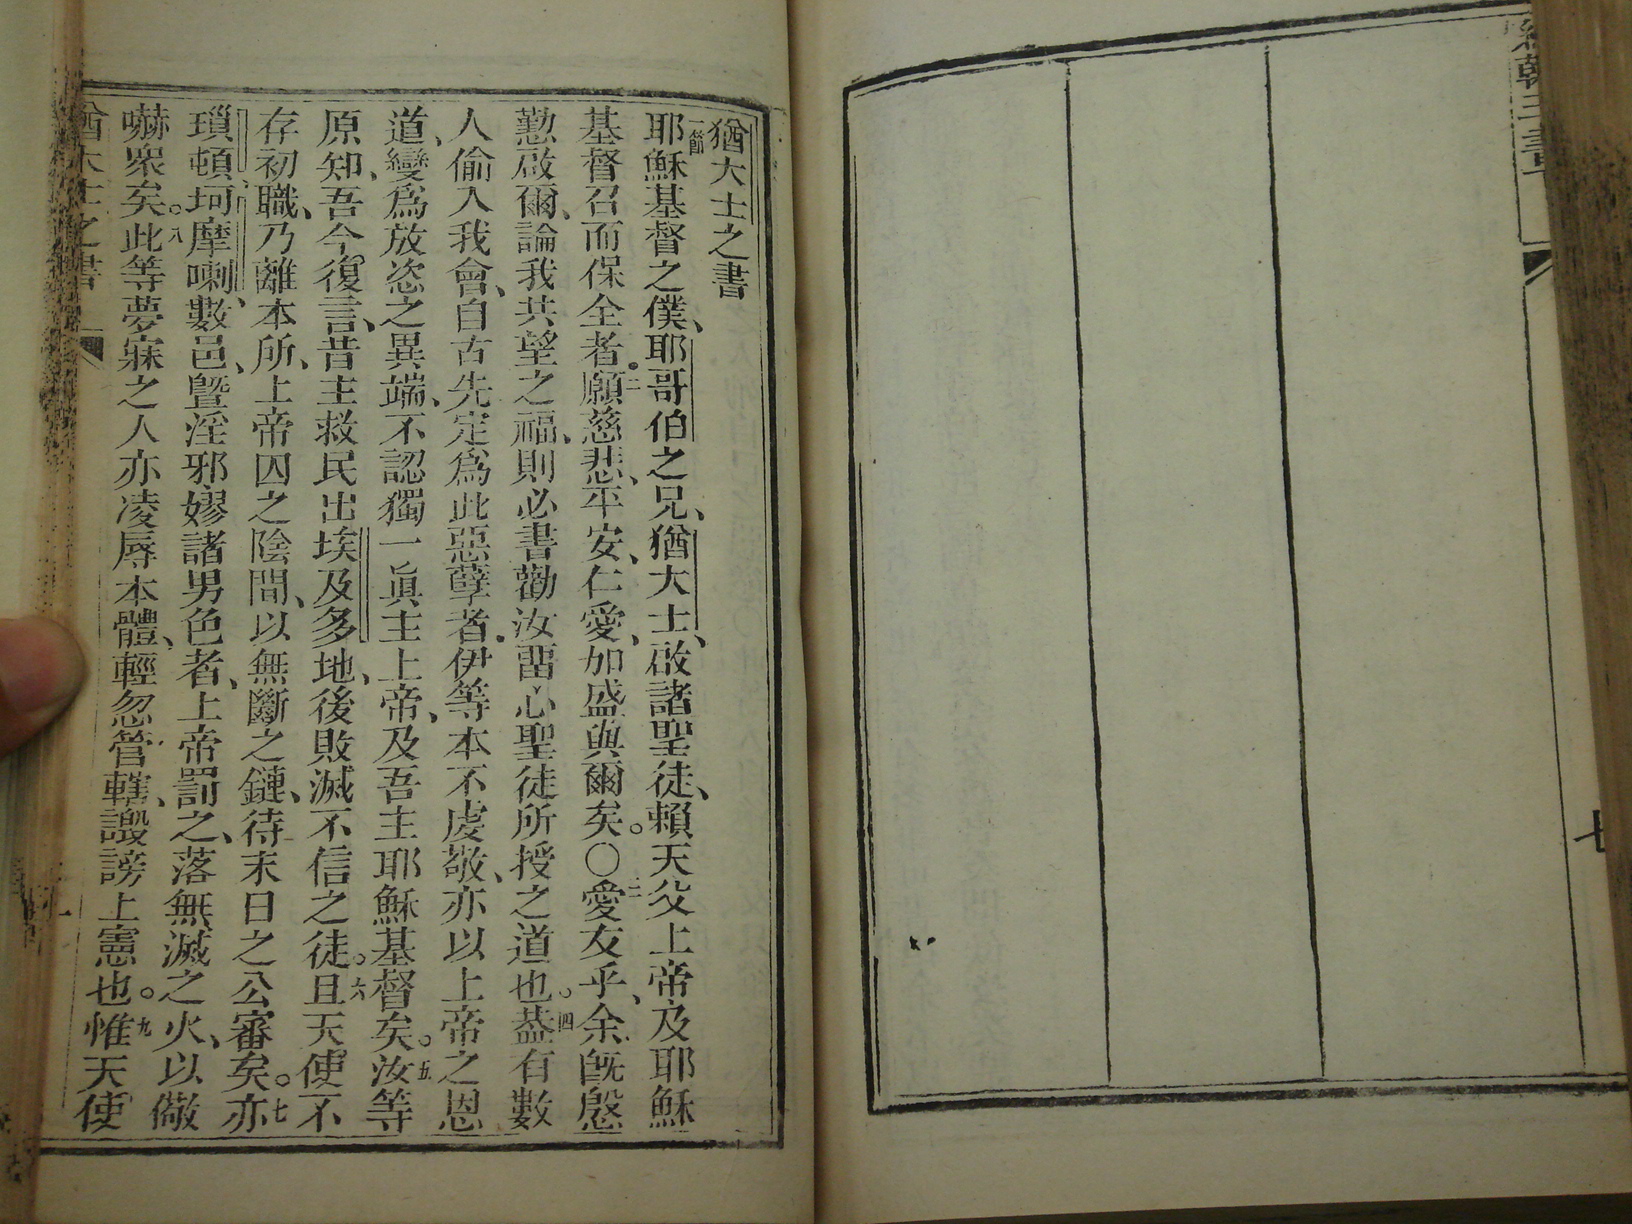 七
猶大士之書
一節
耶穌基督之僕、耶哥伯之兄、猶大士、啟諸聖徒、賴天父上帝及耶穌
基督召而保全者。二願慈悲、平安、仁愛、加盛與爾矣。〇三愛友乎、余旣慇
懃啟爾、論我共望之福、則必書勸汝畱心聖徒所授之道也。四葢有數
人偷入我會、自古先定爲此惡孽者。伊等本不虔敬、亦以上帝之恩
道、變爲放恣之異端、不認獨一眞主上帝、及吾主耶穌基督矣。五汝等
原知、吾今復言、昔主救民出埃及多地、後敗滅不信之徒。六且天使不
存初職、乃離本所、上帝囚之陰間、以無斷之鏈、待末日之公審矣。七亦
瑣頓坷摩喇、數邑、曁淫邪嫪諸男色者、上帝罰之、落無滅之火、以儆
嚇衆矣。八此等夢寐之人亦凌辱本體、輕忽管轄、譭謗上憲也。九惟天使
猶大士之書